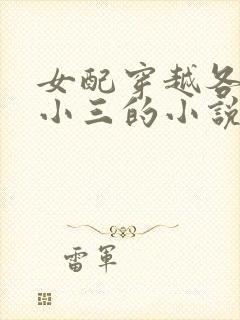 女配穿越各
小三的小說
雷軍